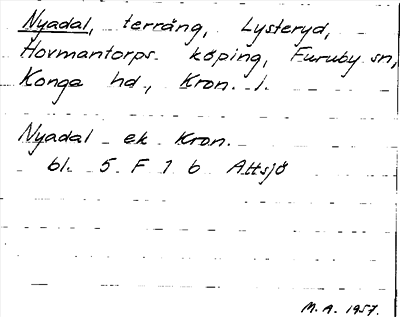 Nyadal, terräng, Lysteryd,
Hovmantorps köping, Furuby sn,
Konga hd, Kron. l.
Nyadal ek Kron.
bl. 5 F 7 b Attsjö
M. A. 1957.